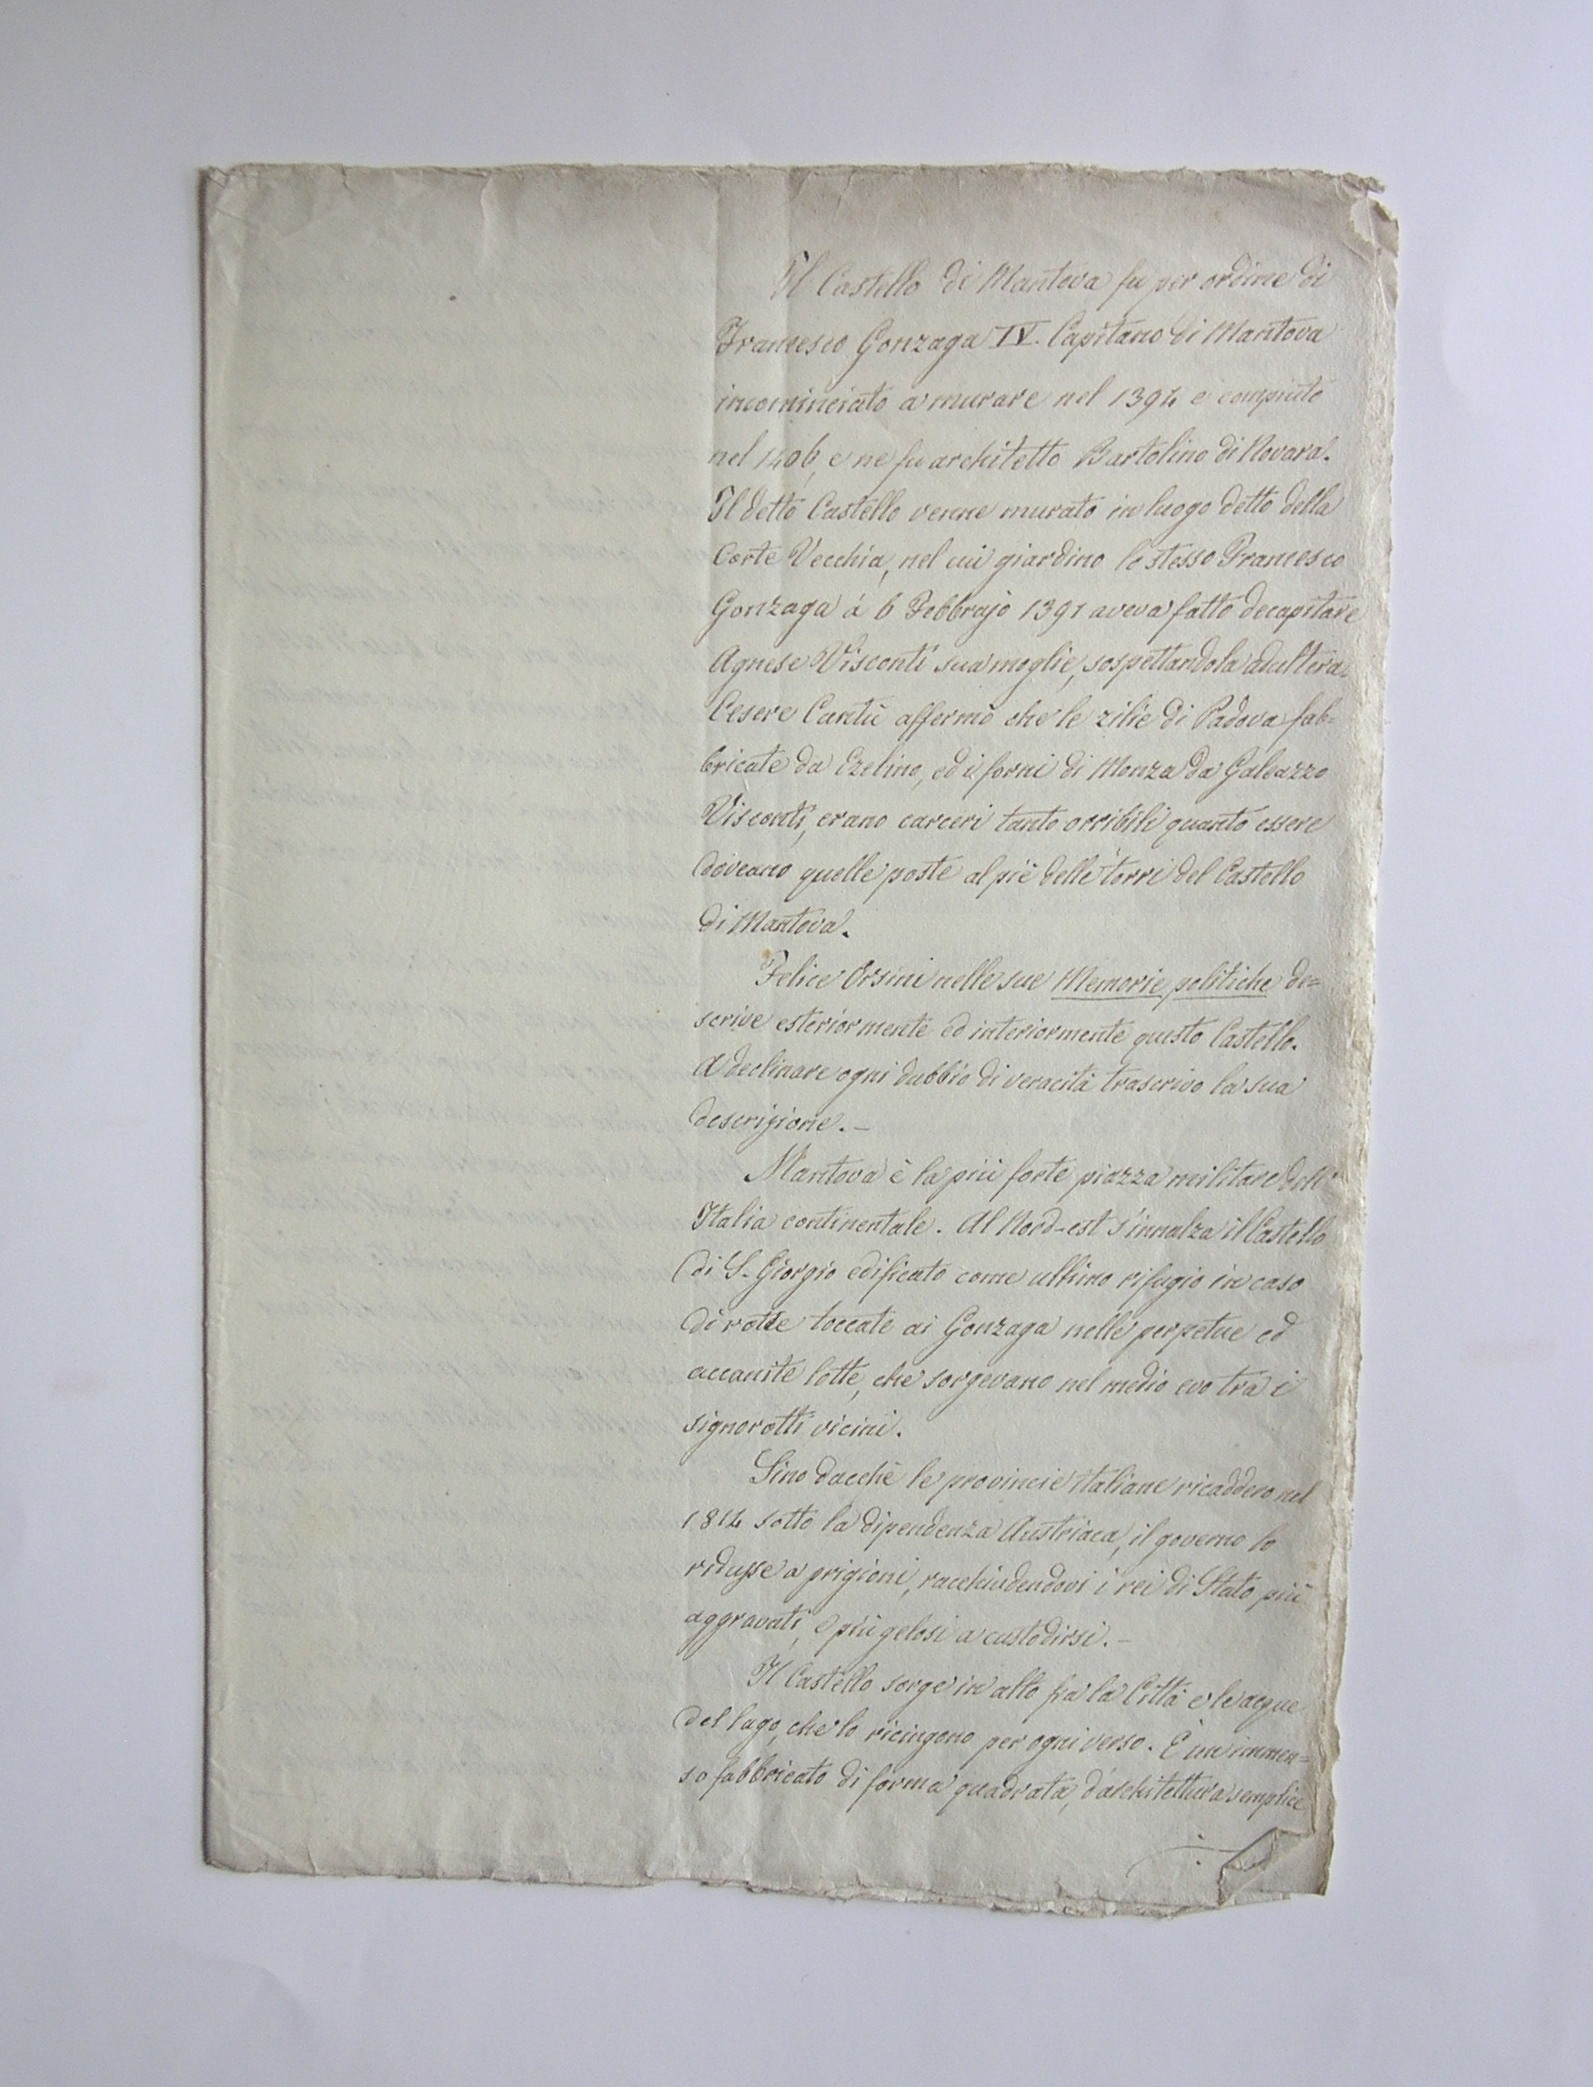 Il Castello di Mantova fu per ordine di
Francesco Gonzaga IV. Capitano di Mantova
incominciato a murare nel 1394 e compiuto
nel 1406, e ne fu architetto Bartolino di Novara.
Il detto Castello venne murato in luogo detto della
Corte Vecchia, nel cui giardino lo stesso Francesco
Gonzaga à 6 Febbrajo 1391 aveva fatto decapitare
Agnese Visconti sua moglie, sospettandola adultera.
Cesere Cantù affermò che le zilie di Padova fab=
bricate da Ezelino, ed i forni di Monza da Galeazzo
Visconti, erano carceri tanto orribili quanto essere
doveano quelle poste al piè delle torri del Castello
di Mantova.
Felice Orsini nelle sue Memorie politiche de=
scrive esteriormente ed interiormente questo Castello.
A declinare ogni dubbio di veracità trascrivo la sua
descrizione. –
Mantova è la più forte piazza militare dell'
Italia continentale. Al Nord-est s'innalza il Castello
di S. Giorgio edificato come ultimo rifugio in caso
di rotte toccate ai Gonzaga nelle perpetue ed
accanite lotte, che sorgevano nel medio evo tra i
signorotti vicini.
Sino dacchè le provincie italiane ricaddero nel
1814 sotto la dipendenza Austriaca, il governo lo
ridusse a prigioni, racchiudendovi i rei di Stato più
aggravati, e più gelosi a custodirsi. –
Il Castello sorge in alto fra la Città e le acque
del lago, che lo ricingono per ogni verso. È un immen=
so fabbricato di forma quadrata, d'architettura semplice